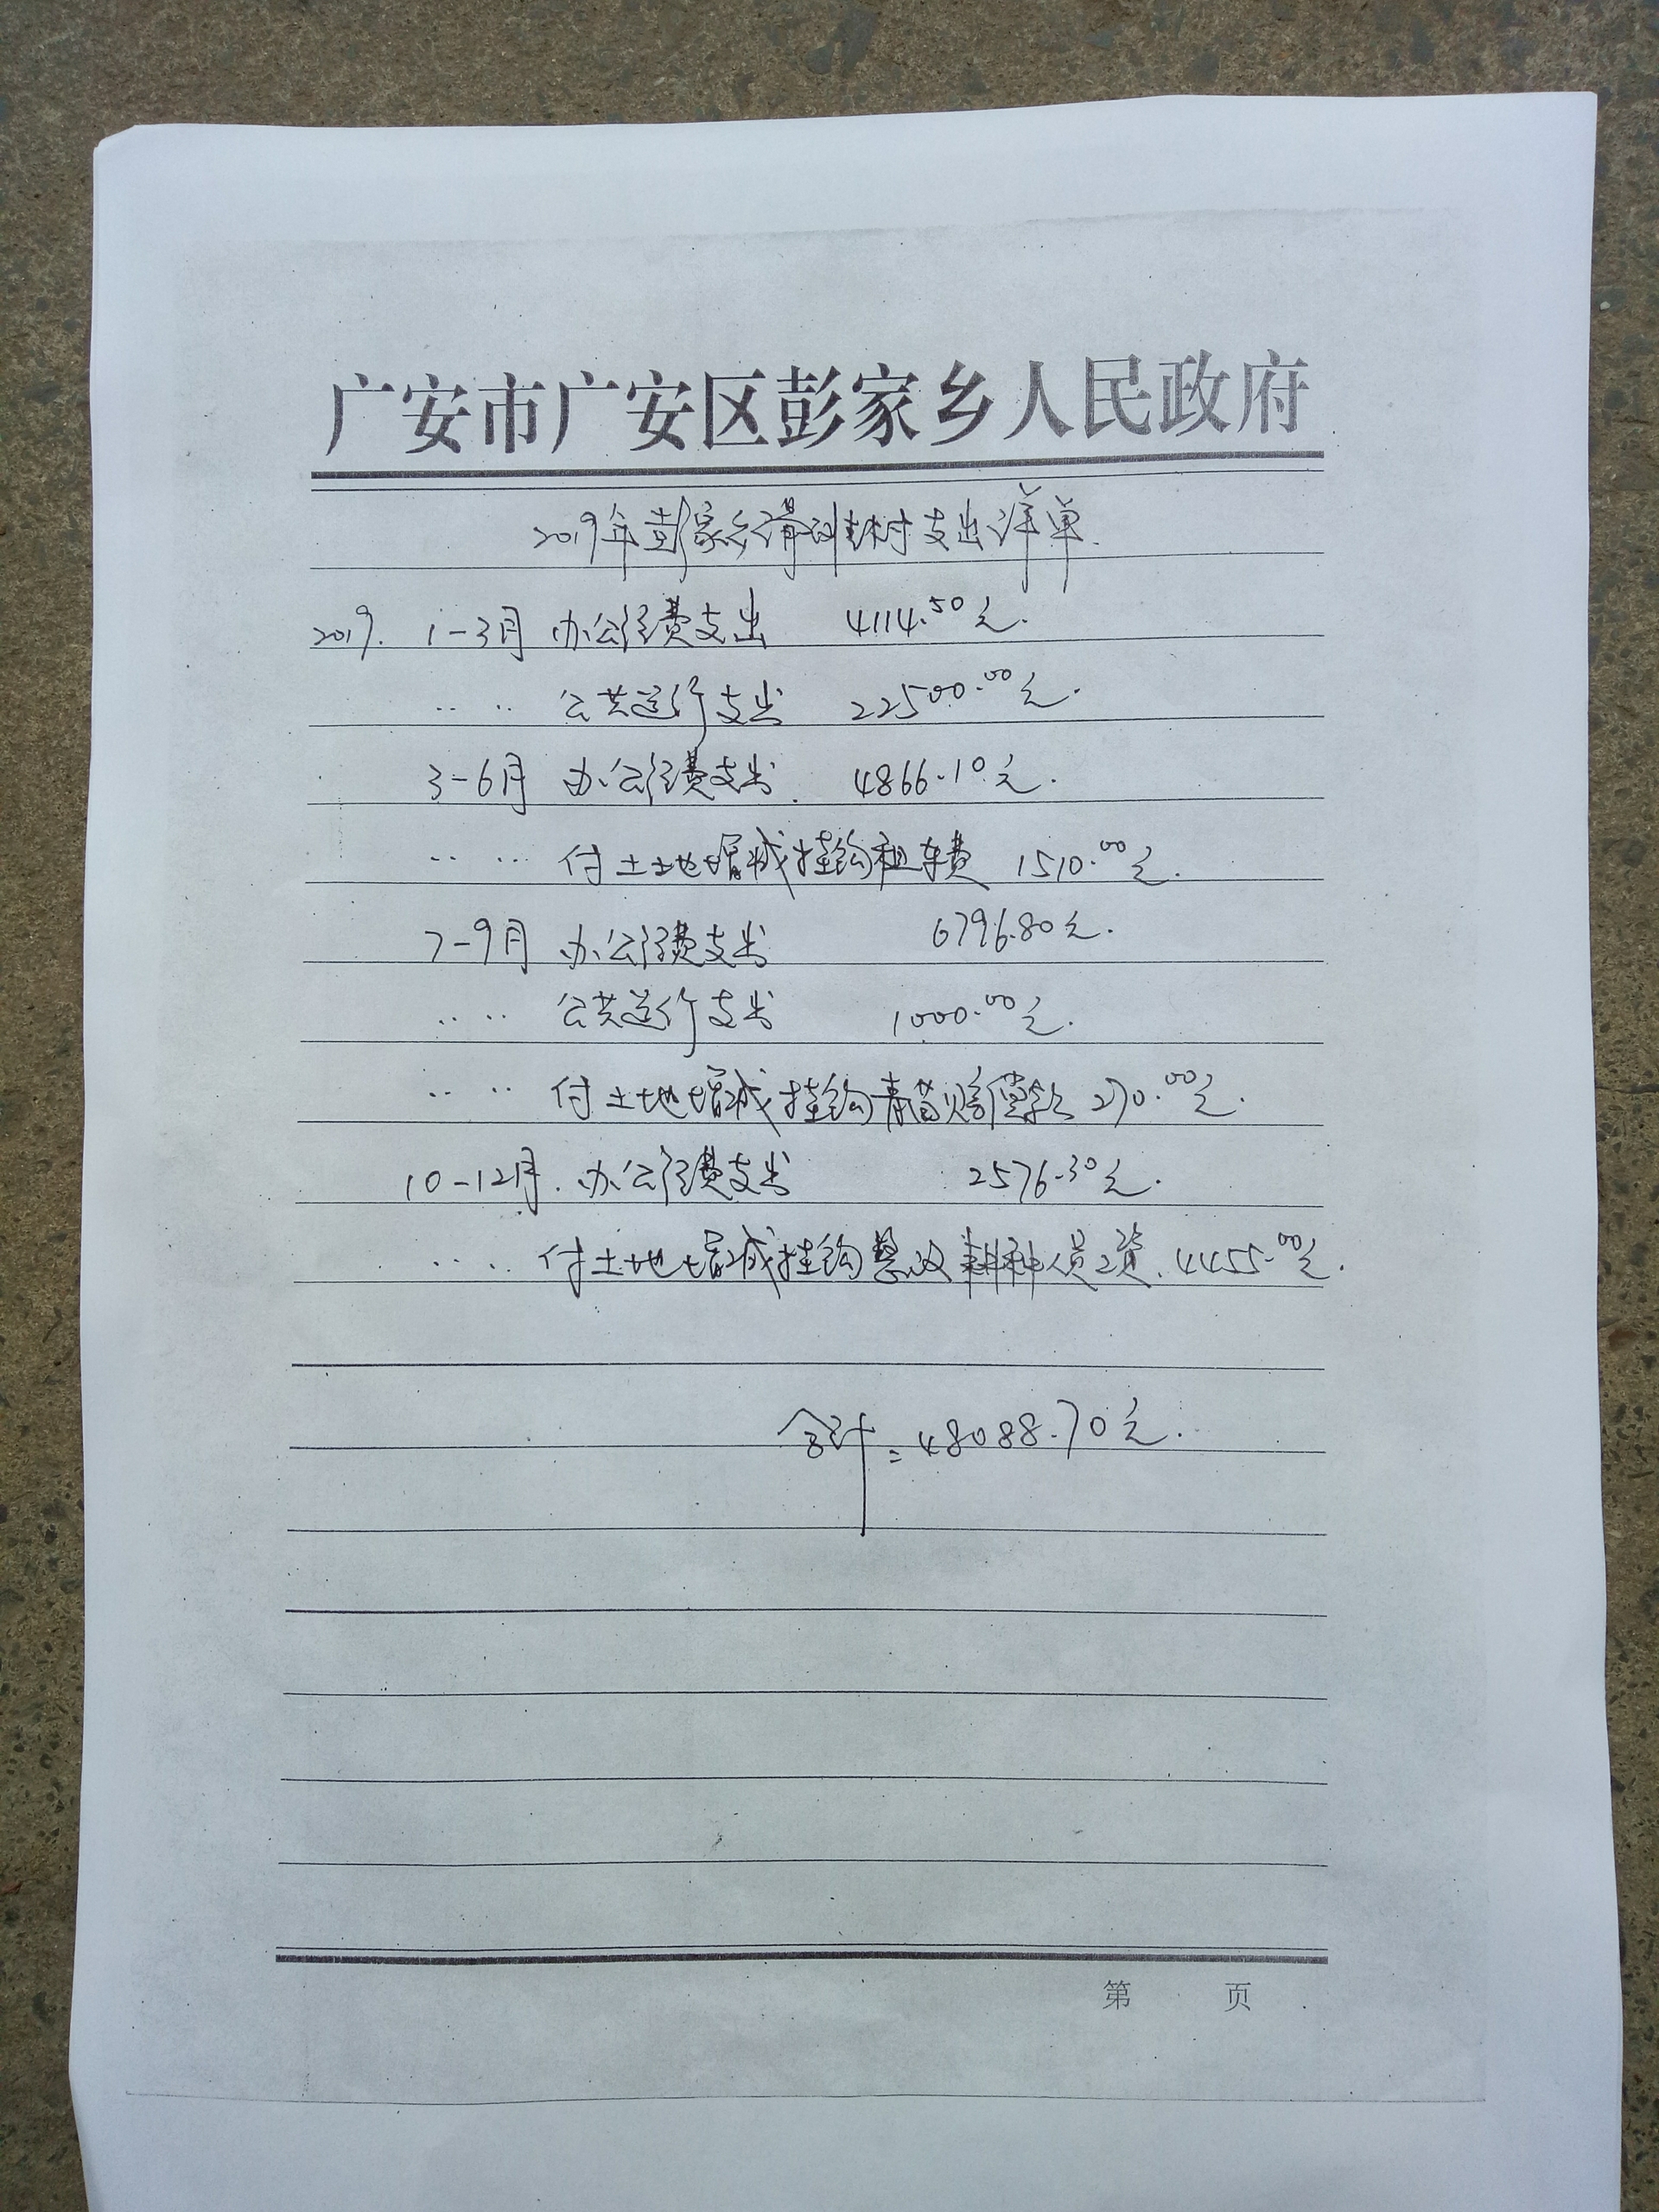 广安市广安区彭家乡人民政府
2019年彭家乡滑村支出详单.
2019. 1-3月 办公经费支出 4114.50元.
.. .. 公共运行支出 22500.00元.
3-6月 办公经费支出. 4866.10元.
.. ... 付土地增减挂钩租车费 1510.00元.
7-9月 办公经费支出 6796.80元.
.. .. 公共运行支出 1000.00元.
.. .. 付土地增减挂钩青苗赔偿款 270.00元.
10-12月. 办公经费支出 2576.30元.
.. .. 付土地增减挂钩耕种人员工资. 4455.00元.
合计=48088.70元.
第 页